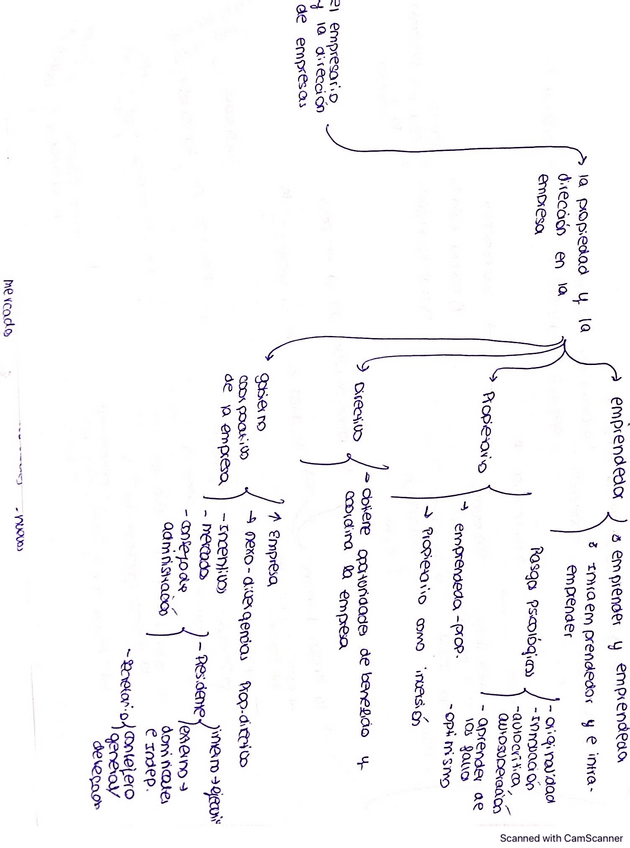 El empresario
y la dirección
de empresas
la propiedad y la
dirección en la
empresa
emprendedor
* emprender y emprendedor
* intraemprendedor y e intra-
emprender
Rasgos psicológicos
- originalidad
- innovación
- autocrítica
autosuperación
- aprender de
los fallos
- optimismo
Propietario
→ emprendedor-prop.
→ Propietario como inversión
Directivo
→ obtiene oportunidades de beneficio y
coordina la empresa
gobierno
coorporativo
de la empresa
↑ Empresa
→ nexo-divergencias Prop.directivo
- Incentivos
- mercados
- consejo de
administración
- Presidente
interno →
externo →
dominicales
e indep.
- Secretario
consejero
general/
delegado
mercado
- nuevos
Scanned with CamScanner